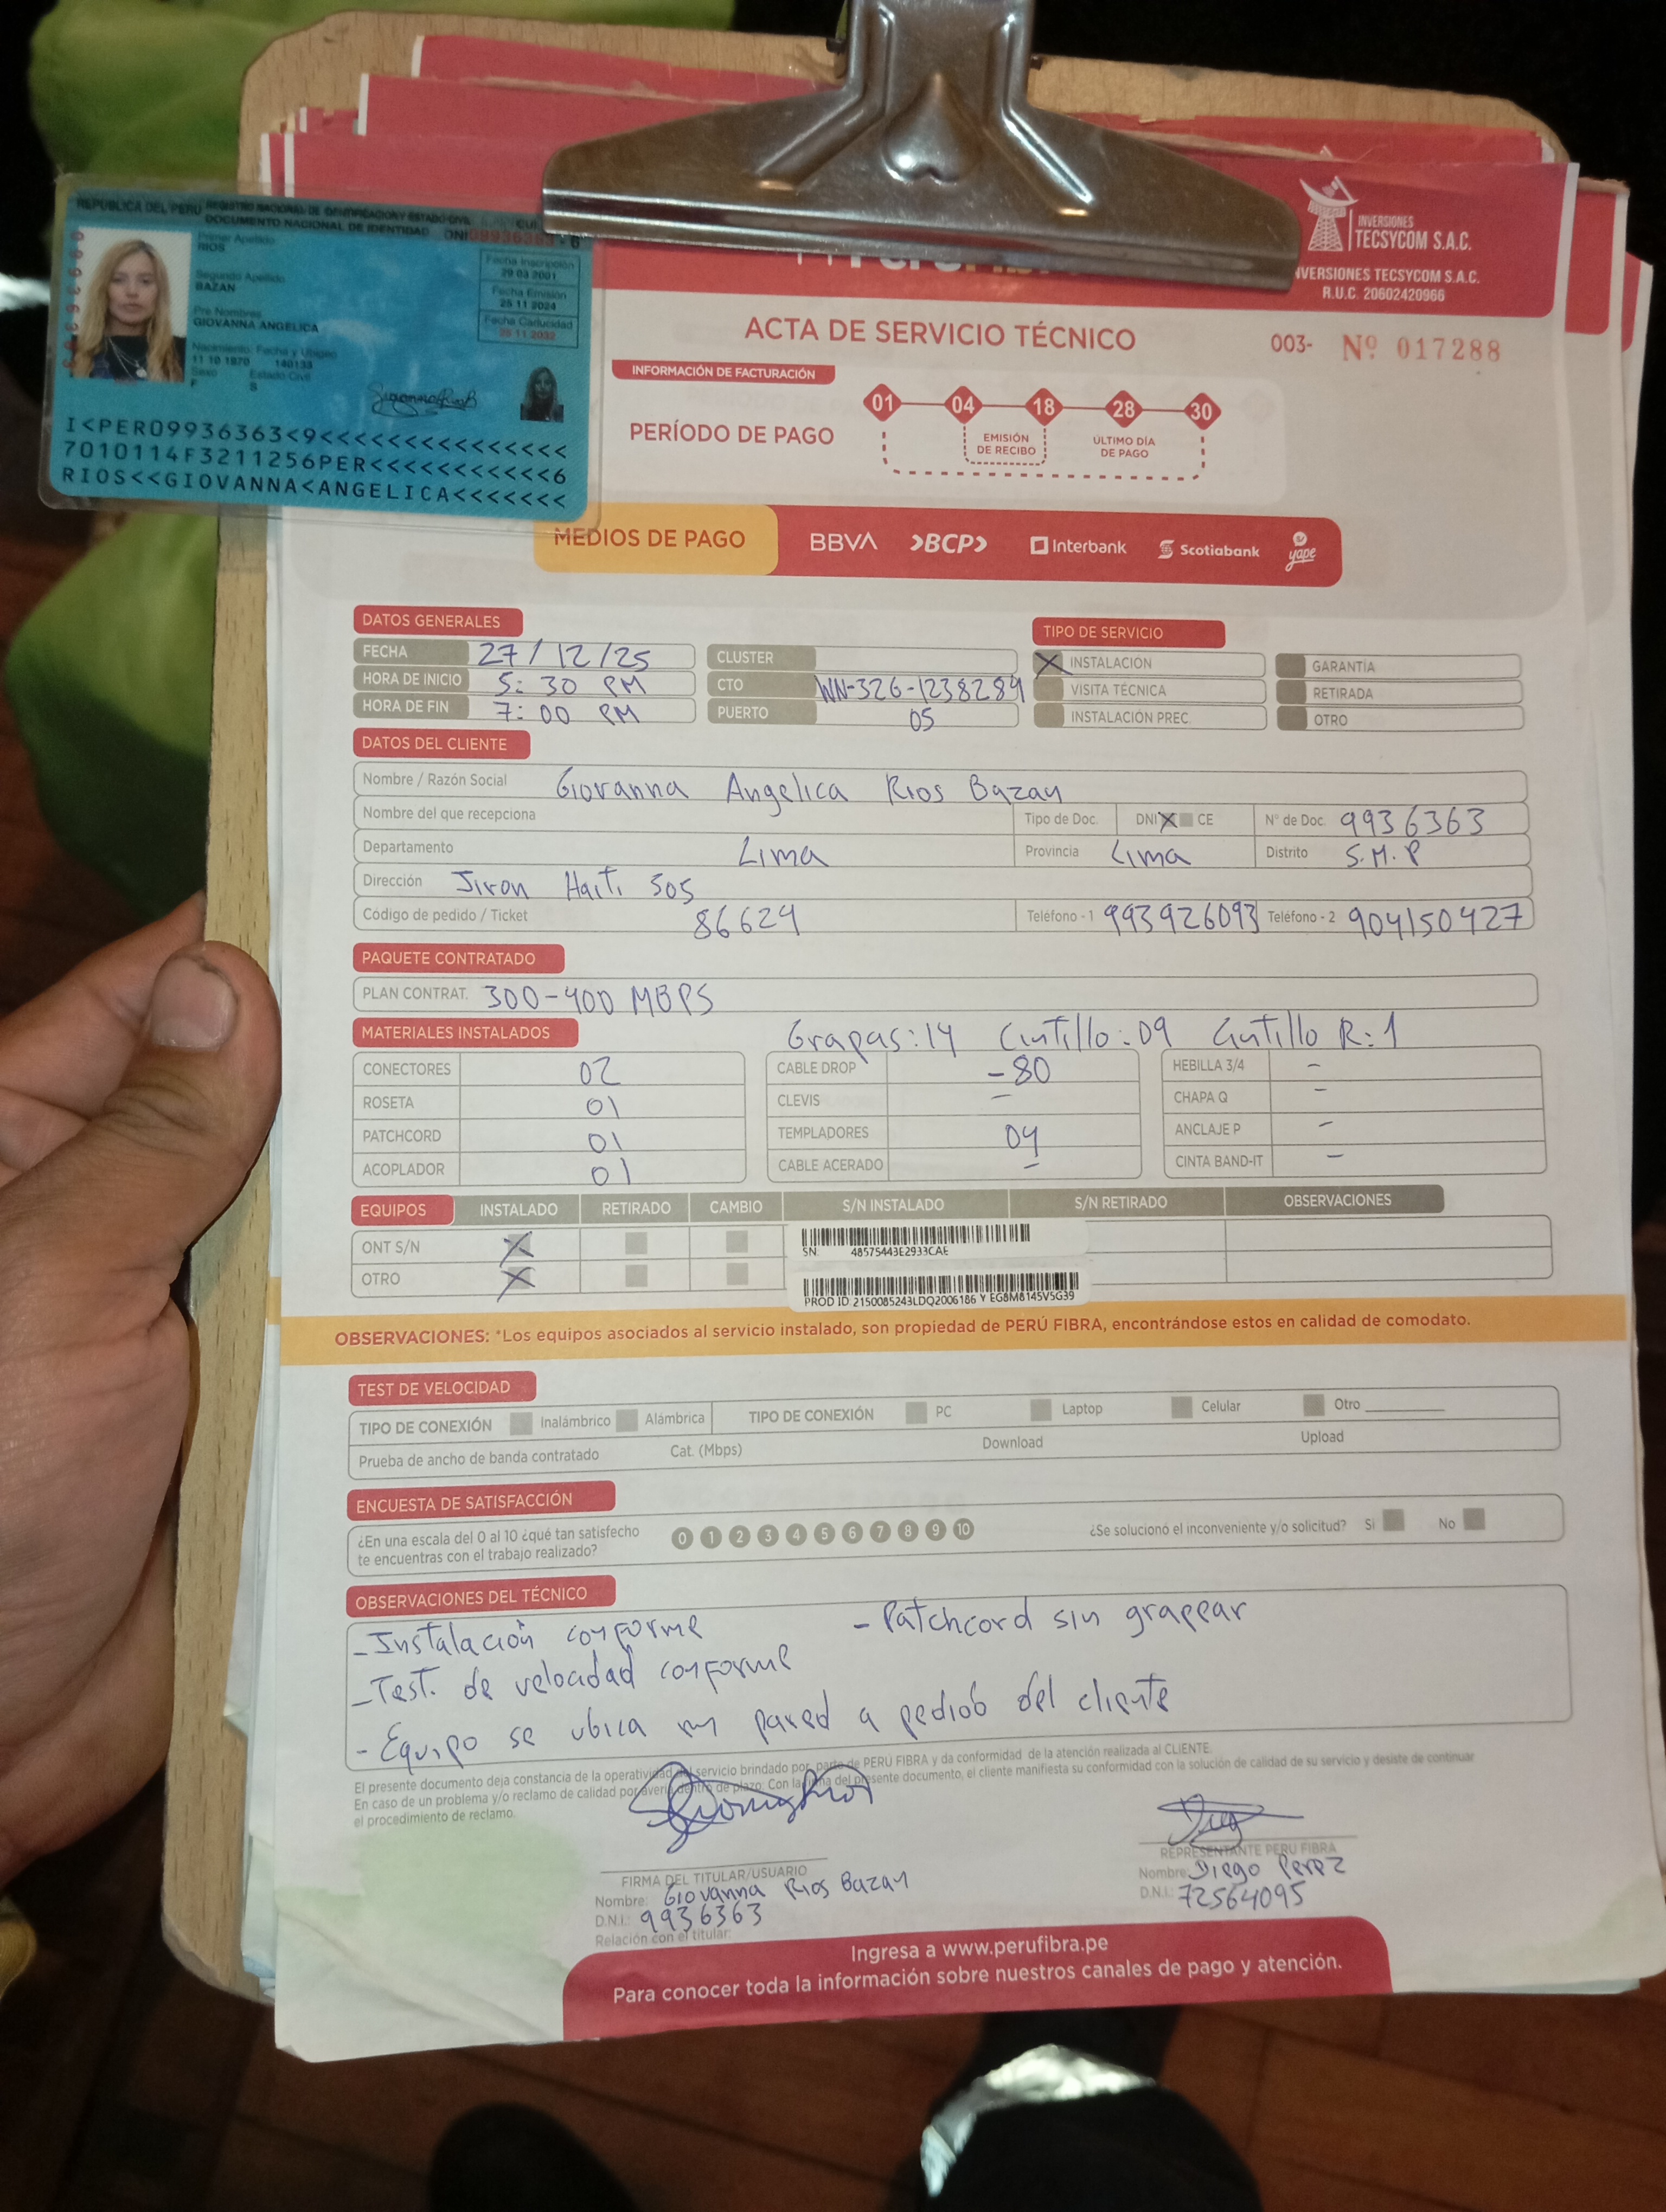 REPUBLICA DEL PERU REGISTRO NACIONAL DE IDENTIFICACION Y ESTADO CIVIL
DOCUMENTO NACIONAL DE IDENTIDAD DNI 09936363 - 6
Primer Apellido
RIOS
Segundo Apellido
BAZAN
Pre Nombres
GIOVANNA ANGELICA
Nacimiento: Fecha y Ubigeo
11 10 1970 140133
Sexo Estado Civil
F S
Fecha Inscripción
29 03 2001
Fecha Emisión
25 11 2024
Fecha Caducidad
25 11 2032
I<PER09936363<9<<<<<<<<<<<<<<<
7010114F3211256PER<<<<<<<<<<<6
RIOS<<GIOVANNA<ANGELICA<<<<<<<
INVERSIONES
TECSYCOM S.A.C.
INVERSIONES TECSYCOM S.A.C.
R.U.C. 20602420966
ACTA DE SERVICIO TÉCNICO
003- Nº 017288
INFORMACIÓN DE FACTURACIÓN
PERÍODO DE PAGO
01 04 18 28 30
EMISIÓN DE RECIBO
ÚLTIMO DÍA DE PAGO
MEDIOS DE PAGO BBVA BCP Interbank Scotiabank yape
DATOS GENERALES
FECHA 27/12/25
HORA DE INICIO 5:30 PM
HORA DE FIN 7:00 PM
CLUSTER
CTO WN-326-1238284
PUERTO 05
TIPO DE SERVICIO
X INSTALACIÓN GARANTÍA
VISITA TÉCNICA RETIRADA
INSTALACIÓN PREC. OTRO
DATOS DEL CLIENTE
Nombre / Razón Social Giovanna Angelica Rios Bazan
Nombre del que recepciona Tipo de Doc. DNI X CE N° de Doc. 9936363
Departamento Lima Provincia Lima Distrito S.M.P
Dirección Jiron Haiti 505
Código de pedido / Ticket 86624 Teléfono - 1 993926093 Teléfono - 2 904150427
PAQUETE CONTRATADO
PLAN CONTRAT. 300-400 MBPS
MATERIALES INSTALADOS Grapas:14 Cintillo:09 Cintillo R:1
CONECTORES 02 CABLE DROP -80 HEBILLA 3/4 -
ROSETA 01 CLEVIS - CHAPA Q -
PATCHCORD 01 TEMPLADORES 04 ANCLAJE P -
ACOPLADOR 01 CABLE ACERADO - CINTA BAND-IT -
EQUIPOS INSTALADO RETIRADO CAMBIO S/N INSTALADO S/N RETIRADO OBSERVACIONES
ONT S/N X SN: 48575443E2933CAE
OTRO X PROD ID 2150085243LDQ2006186 Y EG8M8145V5G39
OBSERVACIONES: *Los equipos asociados al servicio instalado, son propiedad de PERÚ FIBRA, encontrándose estos en calidad de comodato.
TEST DE VELOCIDAD
TIPO DE CONEXIÓN Inalámbrico Alámbrica TIPO DE CONEXIÓN PC Laptop Celular Otro
Prueba de ancho de banda contratado Cat. (Mbps) Download Upload
ENCUESTA DE SATISFACCIÓN
¿En una escala del 0 al 10 ¿qué tan satisfecho
te encuentras con el trabajo realizado?
0 1 2 3 4 5 6 7 8 9 10
¿Se solucionó el inconveniente y/o solicitud? Si No
OBSERVACIONES DEL TÉCNICO
- Instalación conforme - Patchcord sin grapear
- Test. de velocidad conforme
- Equipo se ubica en pared a pedido del cliente
El presente documento deja constancia de la operatividad del servicio brindado por parte de PERÚ FIBRA y da conformidad de la atención realizada al CLIENTE.
En caso de un problema y/o reclamo de calidad por avería dentro de plazo. Con la firma del presente documento, el cliente manifiesta su conformidad con la solución de calidad de su servicio y desiste de continuar
el procedimiento de reclamo.
FIRMA DEL TITULAR/USUARIO
Nombre: Giovanna Rios Bazan
D.N.I.: 9936363
Relación con el titular:
REPRESENTANTE PERU FIBRA
Nombre: Diego Perez
D.N.I.: 72564095
Ingresa a www.perufibra.pe
Para conocer toda la información sobre nuestros canales de pago y atención.